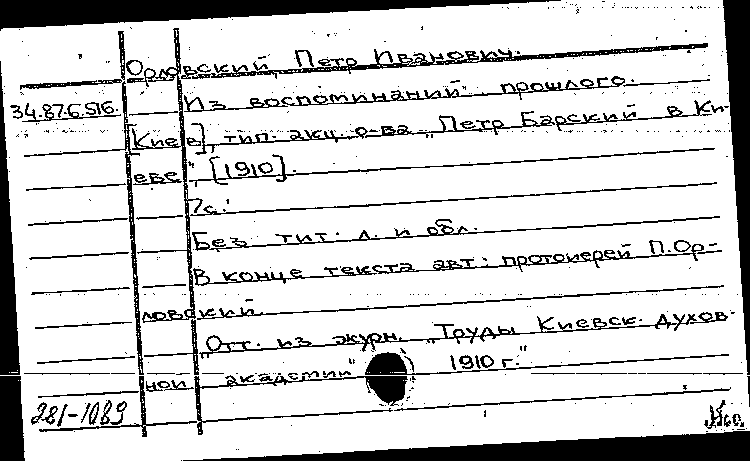 Орловский, Петр Иванович.
34.87.6.516.
Из воспоминаний прошлого.
[Киев], тип. акц. о-ва "Петр Барский в Ки-
еве", [1910].
7с.
Без тит. л. и обл.
В конце текста авт.: протоиерей П.Ор-
ловский.
"Отт. из журн. "Труды Киевск. духов-
ной академии" 1910 г."
281-1089